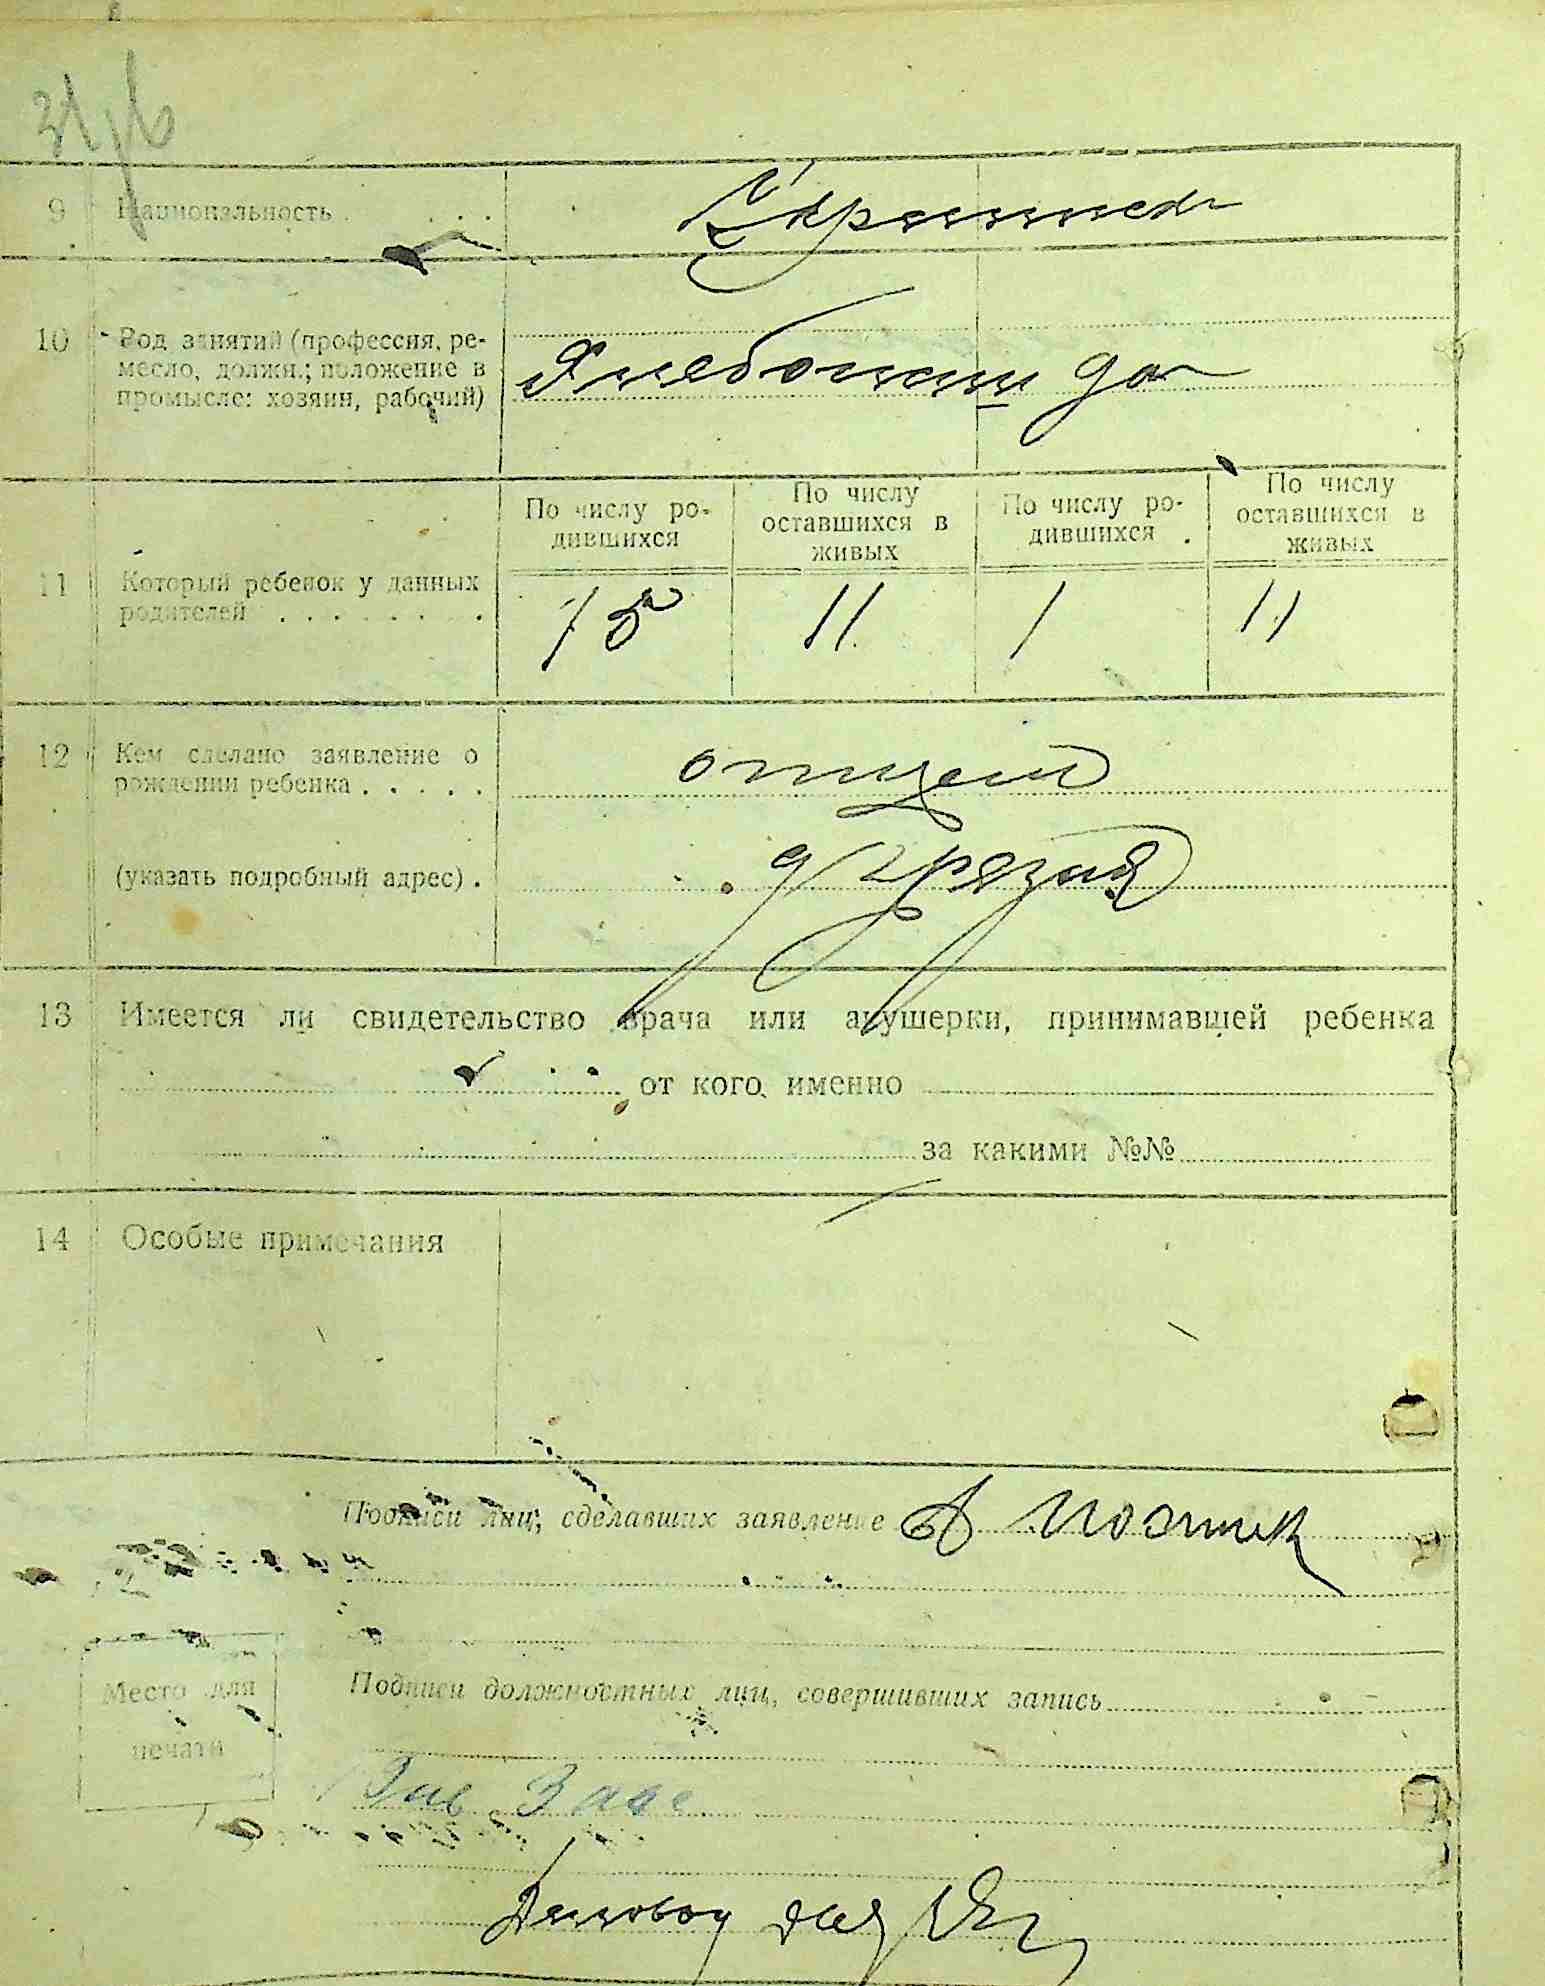 9 Национальность . . . .
10 Род занятий (профессия, ре-
месло, должн.; положение в
промысле: хозяин, рабочий)
Хлебопашец да
По числу ро-
дившихся
По числу
оставшихся в
живых
По числу ро-
дившихся
По числу
оставшихся в
живых
11 Который ребенок у данных
родителей . . . . . . . .
15 11 1 11
12 Кем сделано заявление о
рождении ребенка . . . . .
отцем
(указать подробный адрес) .
13 Имеется ли свидетельство врача или акушерки, принимавшей ребенка
от кого именно
за какими №№
14 Особые примечания
Подписи лиц, сделавших заявление
Подписи должностных лиц, совершивших запись
Место для
печати
Зав Загс
Деловод